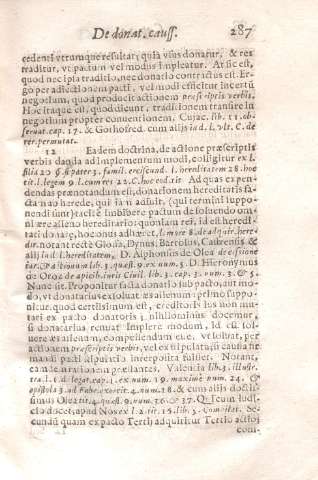 De donat. causs. 287
cedenti vtrumque resultat; quia vsus donatur, & res
traditur, vt pactum vel modus impleatur. At sic est,
quod nec ipsa traditio, nec donatio contractus est. Er-
go per adiectionem pacti, vel modi efficitur incertū
negotium, quod producit actionem præscriptis verbis.
Hoc itaque quod dicunt, traditionem transire in
negotium propter conuentionem. Cujac. lib. 11. ob-
seruat. cap. 17. & Gothofred. cum alijs in d. l. vlt. C. de
rer. permutat.
12 Eadem doctrina, de actione præscriptis
verbis danda ad implementum modi, colligitur ex l.
filia 20 §. si pater 3. famil. erciscund. l. hæreditatem 28. hoc
tit. l. legem 9. l. cum res 22. C. hoc eod. tit. Ad quas expen-
dendas prænotandum est, donationem hæreditatis fa-
cta non herede,
sunt) tacitè subsibere pactum de soluendo om-
ni ære alieno hereditario: quoniam rei, id est heredi-
tati donatæ, hoc onus adhæret, l. more 8. de alquir. here-
dir. notant rectè Glossa, Dynus, Bartolus, Castrensis &
alij in d. l. hæreditatem, D. Alphonsus de Olea de cession
iur. & actionum lib. 3. quæst. 3. num. 3. D. Hieronymus
de Oroz de apicib. iuris Ciuil. lib. 3. cap. 3. num. 3. & 5.
Nunc sit. Proponitur facta donatio sub pacto, aut mo-
do, vt donatarius exsoluat æs alienum: primo suppo-
nitur, quod certissimum est, creditoris ius non mu-
tari ex pacto donatoris; nihilominus docemur,
si donatarius renuat implere modum, id est sol-
uere æs alienum, compellendum esse, vt soluat, per
actionem præscriptis verbis, vel ex stipulatu, si causa fir-
mandi pacti stipulatio interposita fuisset. Notant,
eandem rationem præstantes. Valencia lib. 3. illustr.
tra. l. 1. d. legat. cap. 1. ex num. 19. maximè num. 24. &
epistola 3. ad Fabr. exercit. 4. num. 28. & cum alijs doctis-
simus Olea tit. 4. quæst. 9. num. 36 & 37. Quæcum ludi-
clo docet, apud Nos ex l. 2. tit. 19. lib. 3. Compilat. Se-
cundū quam ex pacto Tertij adquiritur Tertio actio,
com-